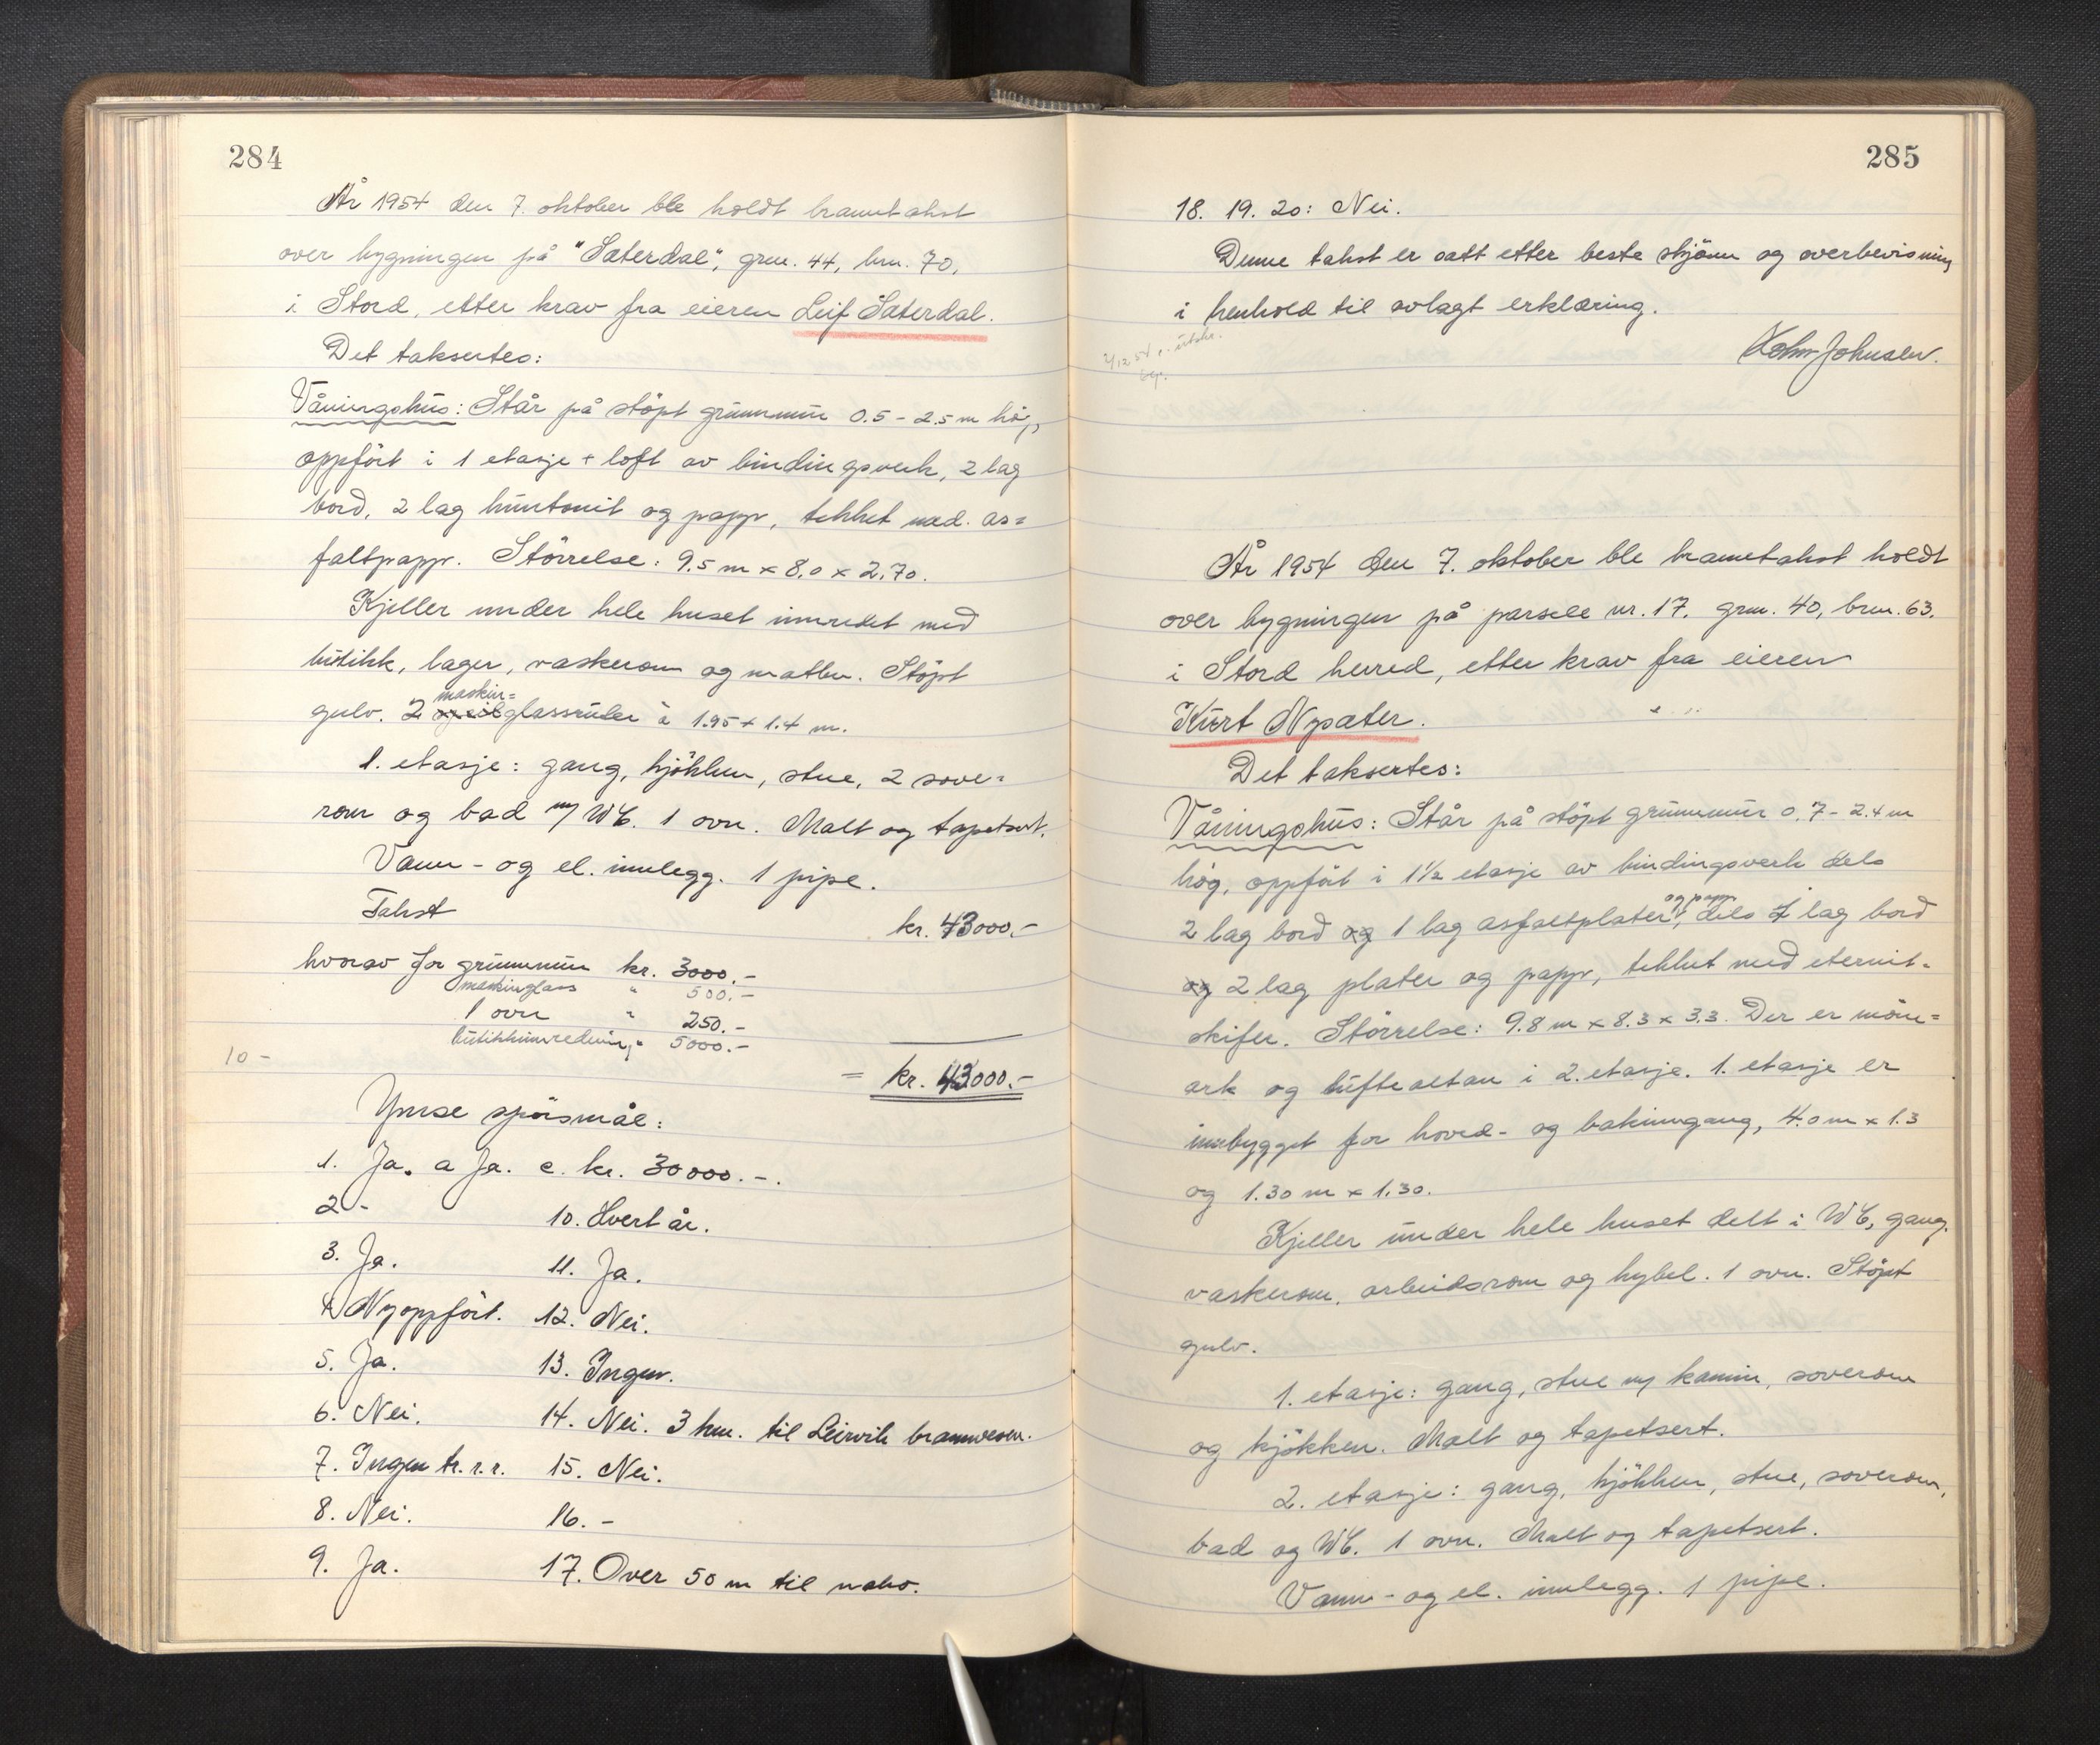 284
År 1954 den 7. oktober ble holdt branntakst
over bygningen på "Sæterdal", grn. 44, brn. 70,
i Stord, etter krav fra eieren Leif Sæterdal.
Det taksertes:
Våningshus: Står på støpt grunnmur 0.5 - 2.5 m høg,
oppført i 1 etasje + loft av bindingsverk, 2 lag
bord, 2 lag huntonit og papp, tekket med as=
faltpapp. Størrelse: 9.5 m x 8.0 x 2.70.
Kjeller under hele huset innredet med
butikk, lager, vaskerom og matbu. Støpt
maskin=
gulv. 2 speilglassruter à 1.95 x 1.4 m.
1. etasje: gang, kjøkken, stue, 2 sove=
rom og bad m/ WC. 1 ovn. Malt og tapetsert.
Vann- og el. innlegg. 1 pipe.
Takst kr. 43000.-
hvorav for grunnmur kr. 3000.-
maskinglass " 500.-
1 ovn " 250.-
butikkinnredning " 5000.-
10 -
= kr. 43000.-
Ymse spørsmål:
1. Ja. a Ja. c. kr. 30000.-.
2 - 10. Hvert år.
3. Ja. 11. Ja.
4. Nyoppført. 12. Nei.
5. Ja. 13. Ingen.
6. Nei. 14. Nei. 3 km. til Leirvik brannvesen.
7. Ingen tr. r.r. 15. Nei.
8. Nei. 16. -
9. Ja. 17. Over 50 m til nabo.
285
18. 19. 20: Nei.
Denne takst er satt etter beste skjønn og overbevisning
i henhold til avlagt erklæring.
2/12 54 utskr.
Johnsen.
År 1954 den 7. oktober ble branntakst holdt
over bygningen på parsell nr. 17, grn. 40, brn. 63.
i Stord herred, etter krav fra eieren
Kurt Nysæter.
Det taksertes:
Våningshus: Står på støpt grunnmur 0.7 - 2.4 m
høg, oppført i 1½ etasje av bindingsverk dels
og papp
2 lag bord og 1 lag asfaltplater, dels 1 lag bord
og 2 lag plater og papp, tekket med eternit-
skifer. Størrelse: 9.8 m x 8.3 x 3.3. Der er møne=
ark og luftealtan i 2. etasje. 1. etasje er
innbygget for hoved- og bakinngang, 4.0 m x 1.3
og 1.30 m x 1.30.
Kjeller under hele huset delt i WC, gang,
vaskerom, arbeidsrom og hybel. 1 ovn. Støpt
gulv.
1. etasje: gang, stue m/ kamin, soverom
og kjøkken. Malt og tapetsert.
2. etasje: gang, kjøkken, stue, soverom,
bad og WC. 1 ovn. Malt og tapetsert.
Vann- og el. innlegg. 1 pipe.